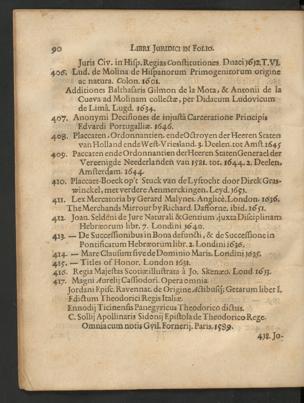 90 LIBRI JURIDICI IN FOLIO.
Juris Civ. in Hisp. Regias Constitutiones. Duaci 1612. T. VI.
406. Lud. de Molina de Hispanorum Primogenitorum origine
ac natura. Colon. 1601.
Additiones Balthasaris Gilmon de la Mota, & Antonii de la
Cueva ad Molinam collectæ, per Didacum Ludovicum
de Limâ. Lugd. 1634.
407. Anonymi Decisiones de injustâ Carceratione Principis
Edvardi Portugalliæ. 1646.
408. Placcaten, Ordonnantien, ende Octroyen der Heeren Staten
van Holland ende West-Vriesland. 3. Deelen. tot Amst. 1645
409. Paccaten ende Ordonnantien der Heeren Staten Generael der
Vereenigde Neederlanden van 1581. tot 1644. 2. Deelen.
Amsterdam. 1644.
410. Placcaet-Boeck op't Stuck van de Lyftocht door Dirck Gras-
winckel, met verdere Aenmerckingen. Leyd. 1651.
411. Lex Mercatoria by Gerard Malynes. Anglicè. London. 1636.
The Merchands Mirrour by Richard Dafforne, ibid. 1651.
412. Joan. Seldéni de Jure Naturali & Gentium, juxta Disciplinam
Hebræorum libr. 7. Londini 1640.
413. — De Successionibus in Bona defuncti, & de Successione in
Pontificatum Hebræorum libr. 2. Londini 1636.
414. — Mare Clausum sive de Dominio Maris. Londini 1635.
415. — Titles of Honor. London 1631.
416. Regia Majestas Scotiæ illustrata à Jo. Skenæo. Lond 1613.
417. Magni Aurelij Cassiodori. Opera omnia
Jordani Episc. Ravennat. de Origine Actibusq; Getarum liber I.
Edictum Theodorici Regis Italiæ.
Ennodij Ticinensis Panegyricus Theodorico dictus.
C. Sollij Apollinaris Sidonij Epistola de Theodorico Rege.
Omnia cum notis Gvil. Fornerij. Paris. 1589.
418. Jo-